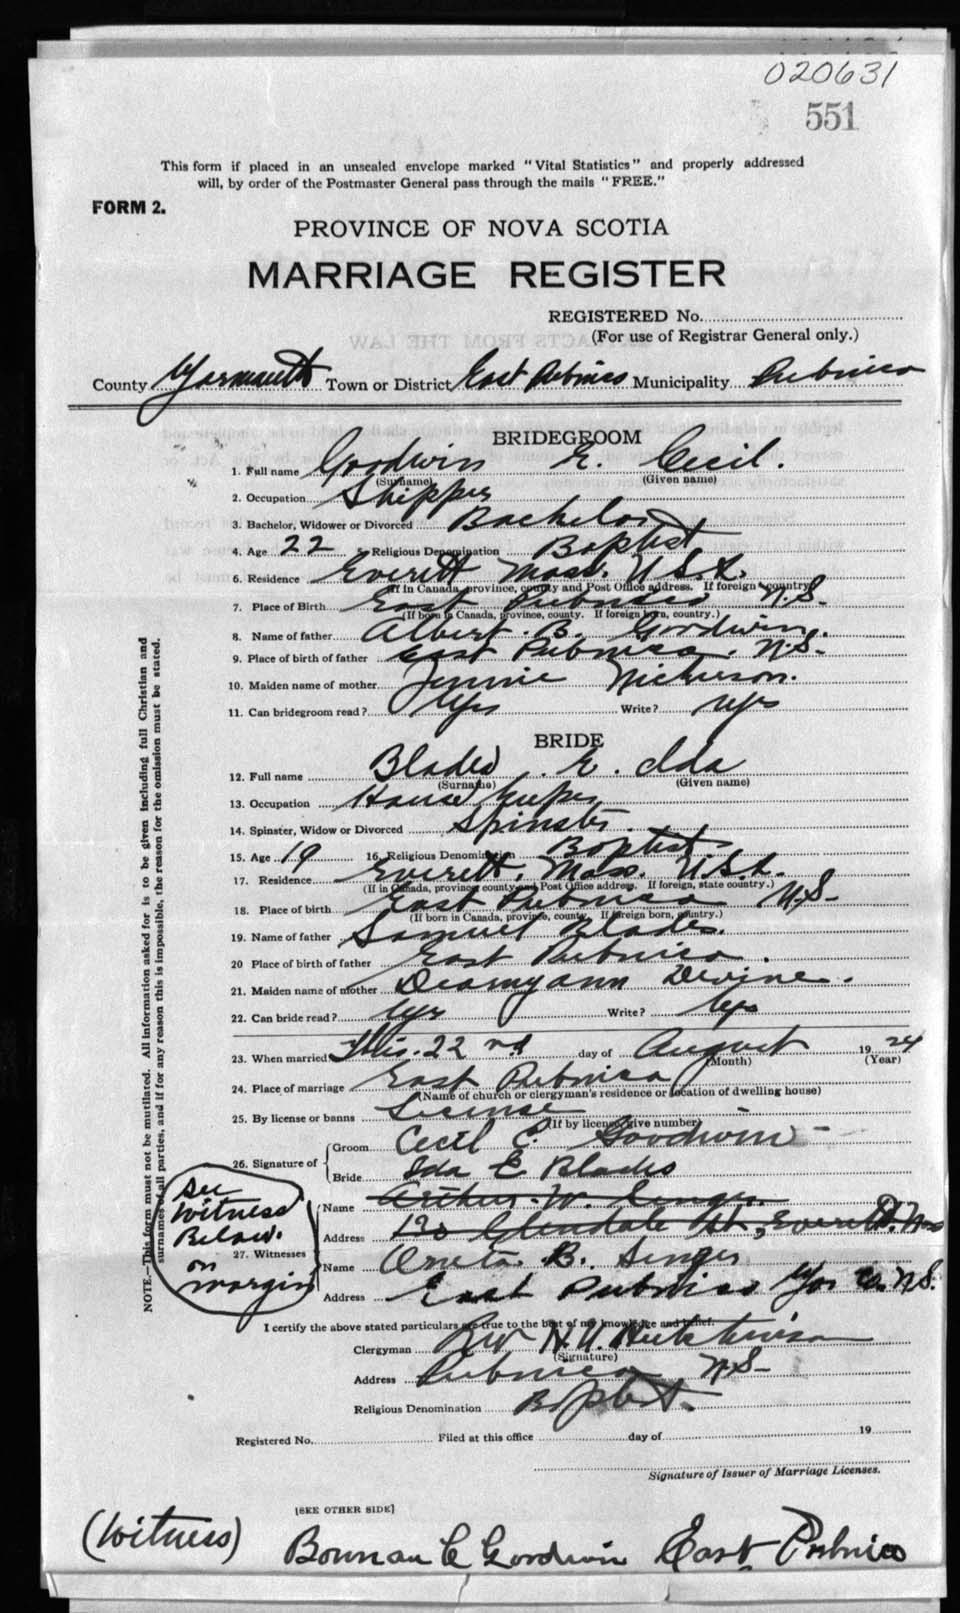 020631
551
This form if placed in an unsealed envelope marked "Vital Statistics" and properly addressed
will, by order of the Postmaster General pass through the mails "FREE."
FORM 2.
PROVINCE OF NOVA SCOTIA
MARRIAGE REGISTER
REGISTERED No.
(For use of Registrar General only.)
County Yarmouth Town or District East Pubnico Municipality Pubnico
BRIDEGROOM
1. Full name Goodwin E. Cecil.
(Surname) (Given name)
2. Occupation Shipper
3. Bachelor, Widower or Divorced Bachelor
4. Age 22 5. Religious Denomination Baptist
6. Residence Everett Mass. U.S.A.
(If in Canada, province, county and Post Office address. If foreign country)
7. Place of Birth East Pubnico N.S.
(If born in Canada, province, county. If foreign born, country.)
8. Name of father Albert. B. Goodwin.
9. Place of birth of father East Pubnico. N.S.
10. Maiden name of mother Jennie Nickerson.
11. Can bridegroom read? Yes Write? Yes
BRIDE
12. Full name Blades. E. Ida
(Surname) (Given name)
13. Occupation House Keeper
14. Spinster, Widow or Divorced Spinster.
15. Age 19 16. Religious Denomination Baptist
17. Residence Everett, Mass. U.S.A.
(If in Canada, province county and Post Office address. If foreign, state country.)
18. Place of birth East Pubnico N.S.
(If born in Canada, province, county. If foreign born, country.)
19. Name of father Samuel Blades.
20 Place of birth of father East Pubnico.
21. Maiden name of mother Devine.
22. Can bride read? Yes Write? Yes
23. When married This. 22nd day of August 1924
(Month) (Year)
24. Place of marriage East Pubnico
(Name of church or clergyman's residence or location of dwelling house)
25. By license or banns License
(If by license give number)
26. Signature of
Groom Cecil E. Goodwin
Bride Ida E Blades
27. Witnesses
Name Arthur. W. Singer.
Address 120 Glendale St, Everett. Mass
Name Oneta B. Singer
Address East Pubnico Yar Co. N.S.
See
Witness
Below.
on
margin
I certify the above stated particulars are true to the best of my knowledge and belief.
Clergyman Rev H. Hutchinson
(Signature)
Address Pubnico N.S.
Religious Denomination Baptist.
Registered No. Filed at this office day of 19
Signature of Issuer of Marriage Licenses.
[SEE OTHER SIDE]
(Witness) Bowman C Goodwin East Pubnico
NOTE.—This form must not be mutilated. All information asked for is to be given including full Christian and
surnames of all parties, and if for any reason this is impossible, the reason for the omission must be stated.